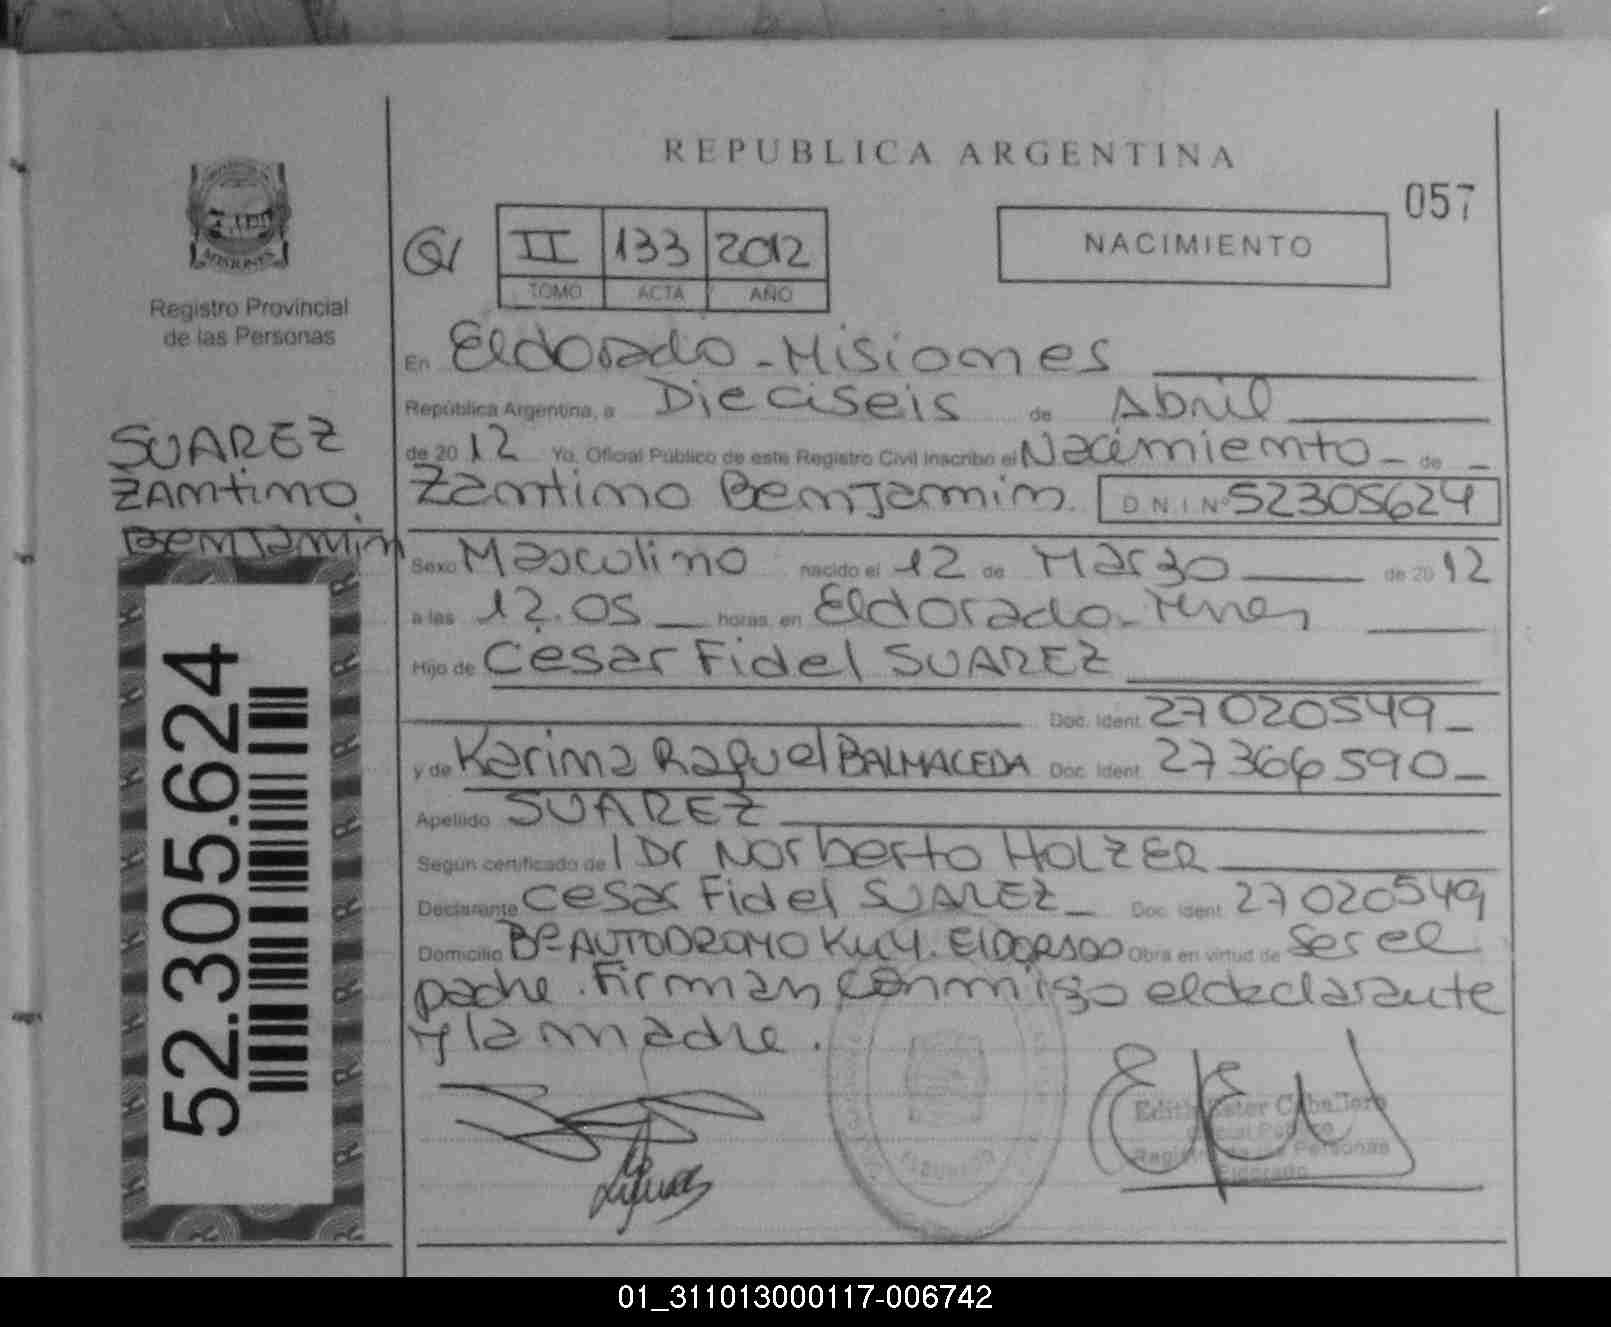 REPUBLICA ARGENTINA
057
II 133 2012
TOMO ACTA AÑO
NACIMIENTO
Registro Provincial
de las Personas
SUAREZ
ZANtiNO
BENJAMIN
52.305.624
En Eldorado - Misiones
República Argentina, a Dieciseis de Abril
de 2012 Yo, Oficial Público de este Registro Civil Inscribo el Nacimiento - de -
Zantino Benjamin. D.N.I. Nº 52305624
Sexo Masculino nacido el 12 de Marzo de 2012
a las 12.05 horas, en Eldorado -
Hijo de Cesar Fidel SUAREZ
Doc. Ident. 27020549 -
y de Karina Raquel BALMACEDA Doc. Ident. 27366590 -
Apellido SUAREZ
Según certificado de l Dr Norberto HOLZER
Declarante Cesar Fidel SUAREZ - Doc. Ident. 27020549
Domicilio Bº AUTODROMO Km 4. ElDORADO Obra en virtud de Ser el
padre. Firman conmigo el declarante
y la madre.
Edith Ester Caballero
Oficial Público
Registro de las Personas
Eldorado
ELDORADO
01_311013000117-006742